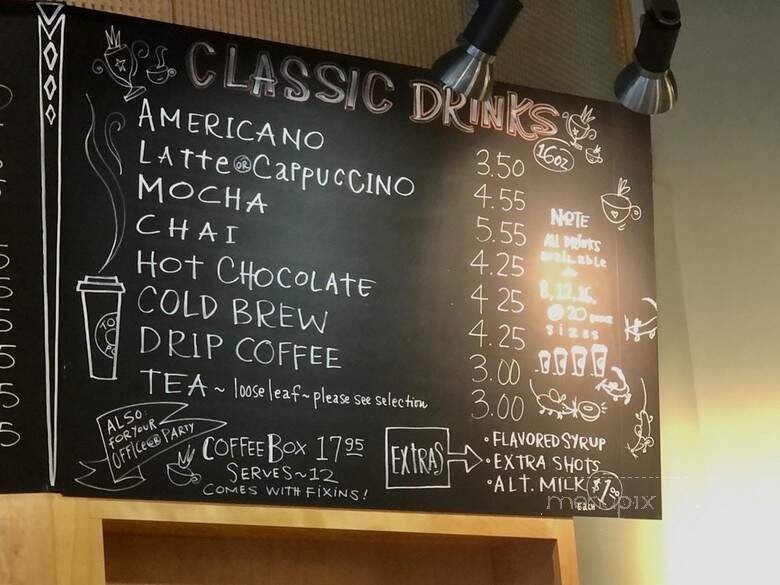 CLASSIC DRINKS
16oz
AMERICANO 3.50
LATTE OR CAPPUCCINO 4.55
MOCHA 5.55
CHAI 4.25
HOT CHOCOLATE 4 25
COLD BREW 4.25
DRIP COFFEE 3.00
TEA ~ loose leaf ~ please see selection 3.00
NOTE
ALL DRINKS
available
8, 12, 16,
@ 20 ounce
sizes
ALSO
FOR YOUR
OFFICE OR PARTY
COFFEE BOX 17 95
SERVES ~ 12
COMES WITH FIXINS!
EXTRAS
• FLAVORED SYRUP
• EXTRA SHOTS
• ALT. MILK $1 00
EACH
menupix
5
5
5
5
5
5